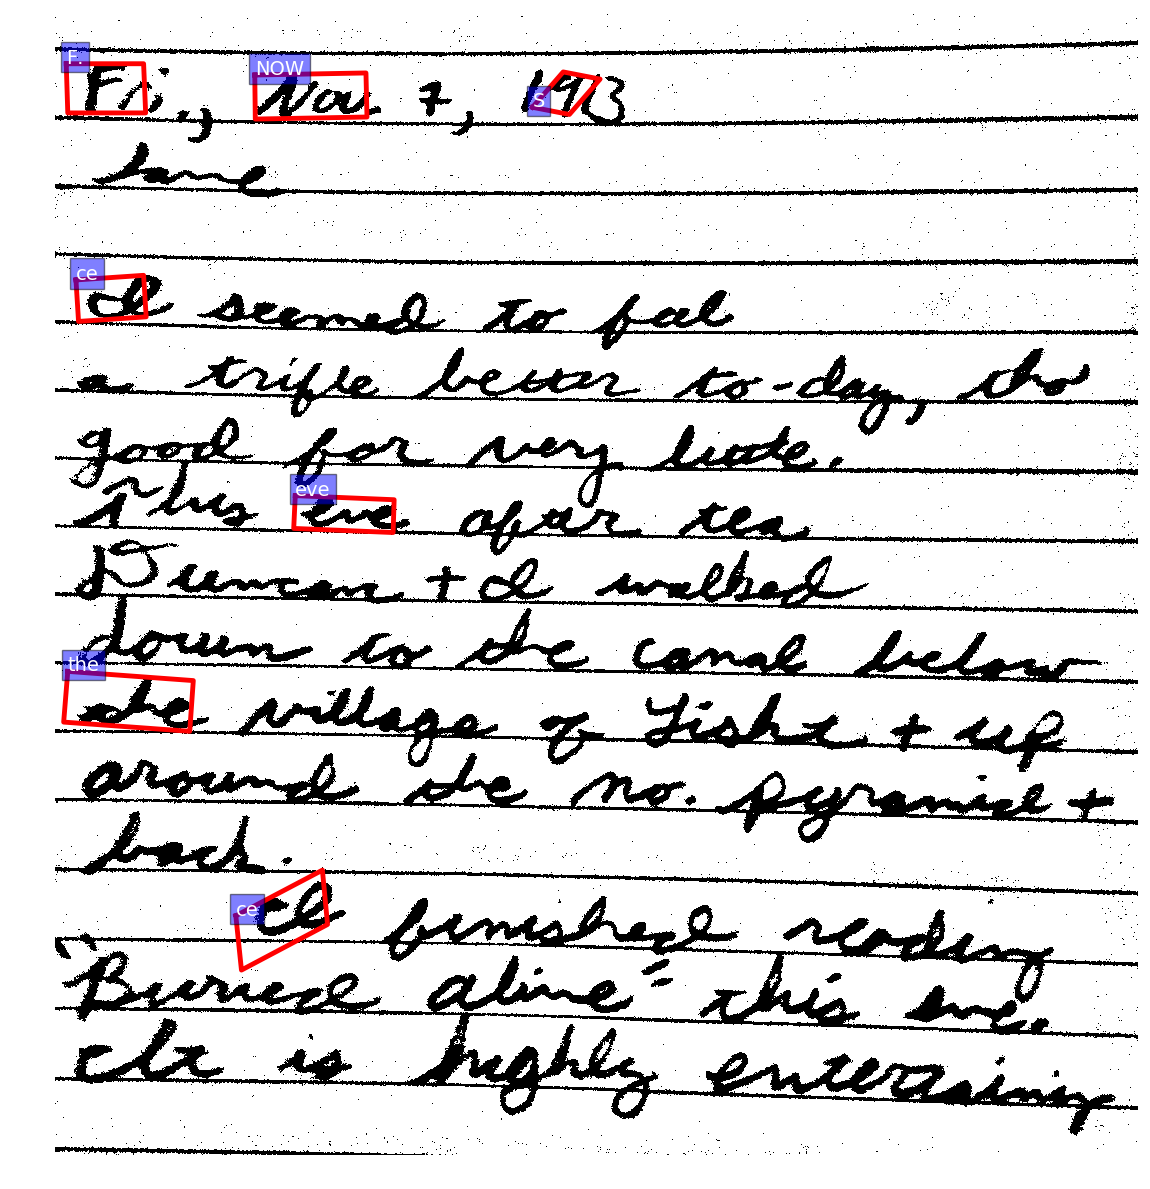 Fri., Nov. 7, 1913
Same
I seemed to feel
a trifle better to-day, tho'
good for very little.
This eve after tea
Duncan + I walked
down to the canal below
the village of Lisht + up
around the no. pyramid +
back.
I finished reading
"Buried alive" this eve.
It is highly entertaining